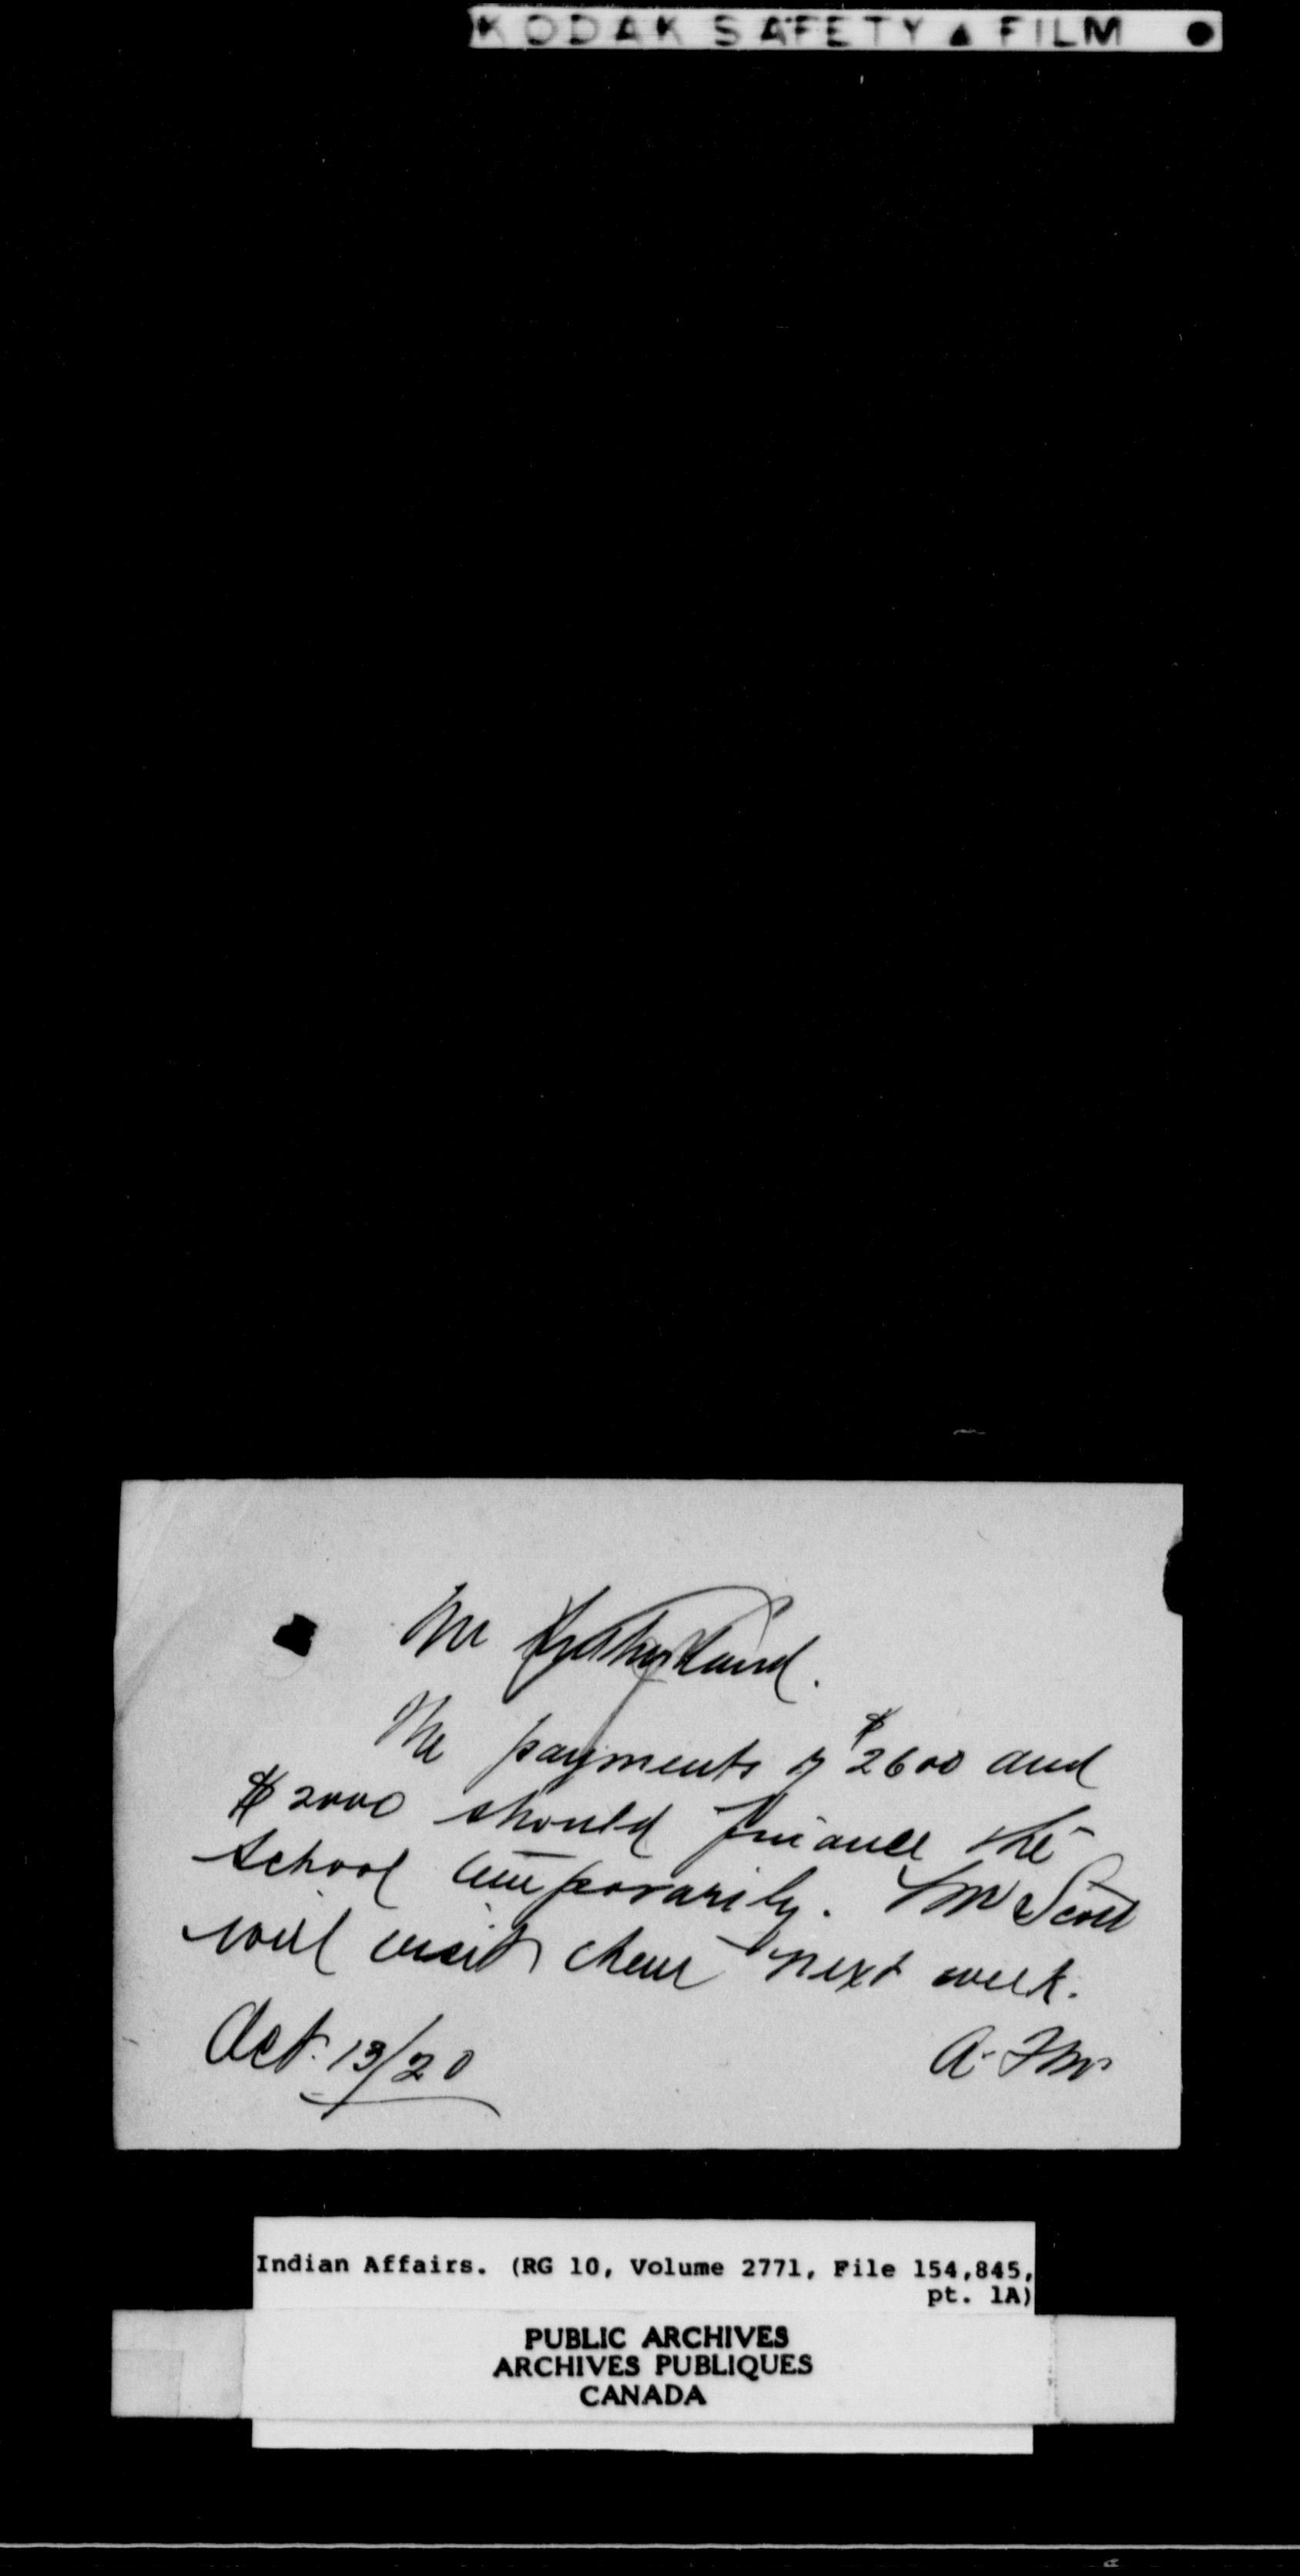 KODAK SAFETY ▲ FILM ●
Mr Sutherland.
The payments of $2600 and
$2000 should finance the
school temporarily. Mr Scott
will visit them next week.
Oct. 13/20
A. F. M.
Indian Affairs. (RG 10, Volume 2771, File 154,845,
pt. 1A)
PUBLIC ARCHIVES
ARCHIVES PUBLIQUES
CANADA